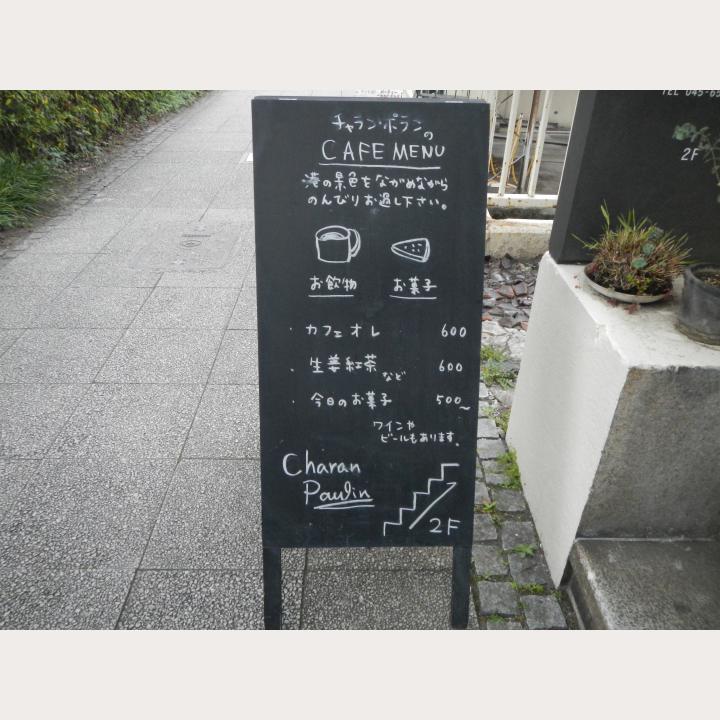 チャラン・ポランの
CAFE MENU
港の景色をながめながら
のんびりお過し下さい。
お飲物 お菓子
・カフェオレ 600
・生姜紅茶など 600
・今日のお菓子 500~
ワインや
ビールもあります。
Charan
Paulin
2F
2F